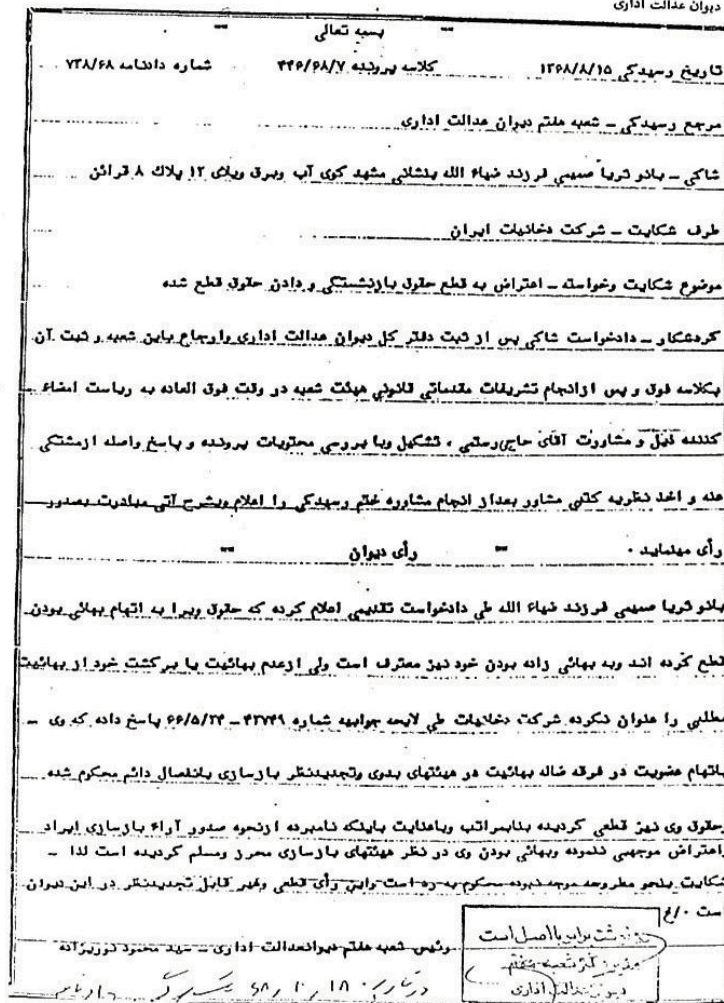 دیوان عدالت اداری
بسمه تعالی
تاریخ رسیدگی ۱۳۶۸/۸/۱۵ کلاسه پرونده ۴۴۶/۶۸/۷ شماره دادنامه ۷۳۸/۶۸
مرجع رسیدگی ـ شعبه هفتم دیوان عدالت اداری
شاکی ـ بانو ثریا صمیمی فرزند ضیاء الله بنشانی مشهد کوی آب وبرق ویلای ۱۲ پلاك ۸ قرائن
طرف شکایت ـ شرکت دخانیات ایران
موضوع شکایت وخواسته ـ اعتراض به قطع حقوق بازنشستگی و دادن حقوق قطع شده
گردشکار ـ دادخواست شاکی پس از ثبت دفتر کل دیوان عدالت اداری وارجاع باین شعبه و ثبت آن
بکلاسه فوق و پس ازانجام تشریفات مقدماتی قانونی هیئت شعبه در وقت فوق العاده به ریاست امضاء
کننده ذیل و مشاورت آقای حاجی‌رستمی ، تشکیل وبا بررسی محتویات پرونده و پاسخ واصله ازمشتکی
عنه و اخذ نظریه کتبی مشاور بعداز انجام مشاوره ختم رسیدگی را اعلام وبشرح آتی مبادرت بصدور
رأی مینماید . رأی دیوان
بانو ثریا صمیمی فرزند ضیاء الله طی دادخواست تقدیمی اعلام کرده که حقوق ویرا به اتهام بهائی بودن
قطع کرده اند وبه بهائی زاده بودن خود نیز معترف است ولی ازعدم بهائیت یا برگشت خود از بهائیت
مطلبی را عنوان نکرده شرکت دخانیات طی لایحه جوابیه شماره ۴۲۷۴۹ ـ ۶۶/۵/۲۴ پاسخ داده که وی ـ
باتهام عضویت در فرقه ضاله بهائیت در هیئتهای بدوی وتجدیدنظر بازسازی بانفصال دائم محکوم شده
وحقوق وی نیز قطعی گردیده بنابمراتب وباعنایت باینکه نامبرده ازنحوه صدور آراء بازسازی ایراد
واعتراض موجهی ننموده وبهائی بودن وی در نظر هیئتهای بازسازی محرز ومسلم گردیده است لذا ـ
شکایت بنحو مطروحه موجه نبوده محکوم به رد است واین رأی قطعی وغیر قابل تجدیدنظر در این دیوان
است ۰/ع
رئیس شعبه هفتم دیوانعدالت اداری ـ سید محمود نوریزاده
رونوشت برابر با اصل است
مدیر دفتر شعبه هفتم
دیوان عدالت اداری
در تاریخ ۶۸/۱۰/۱۸